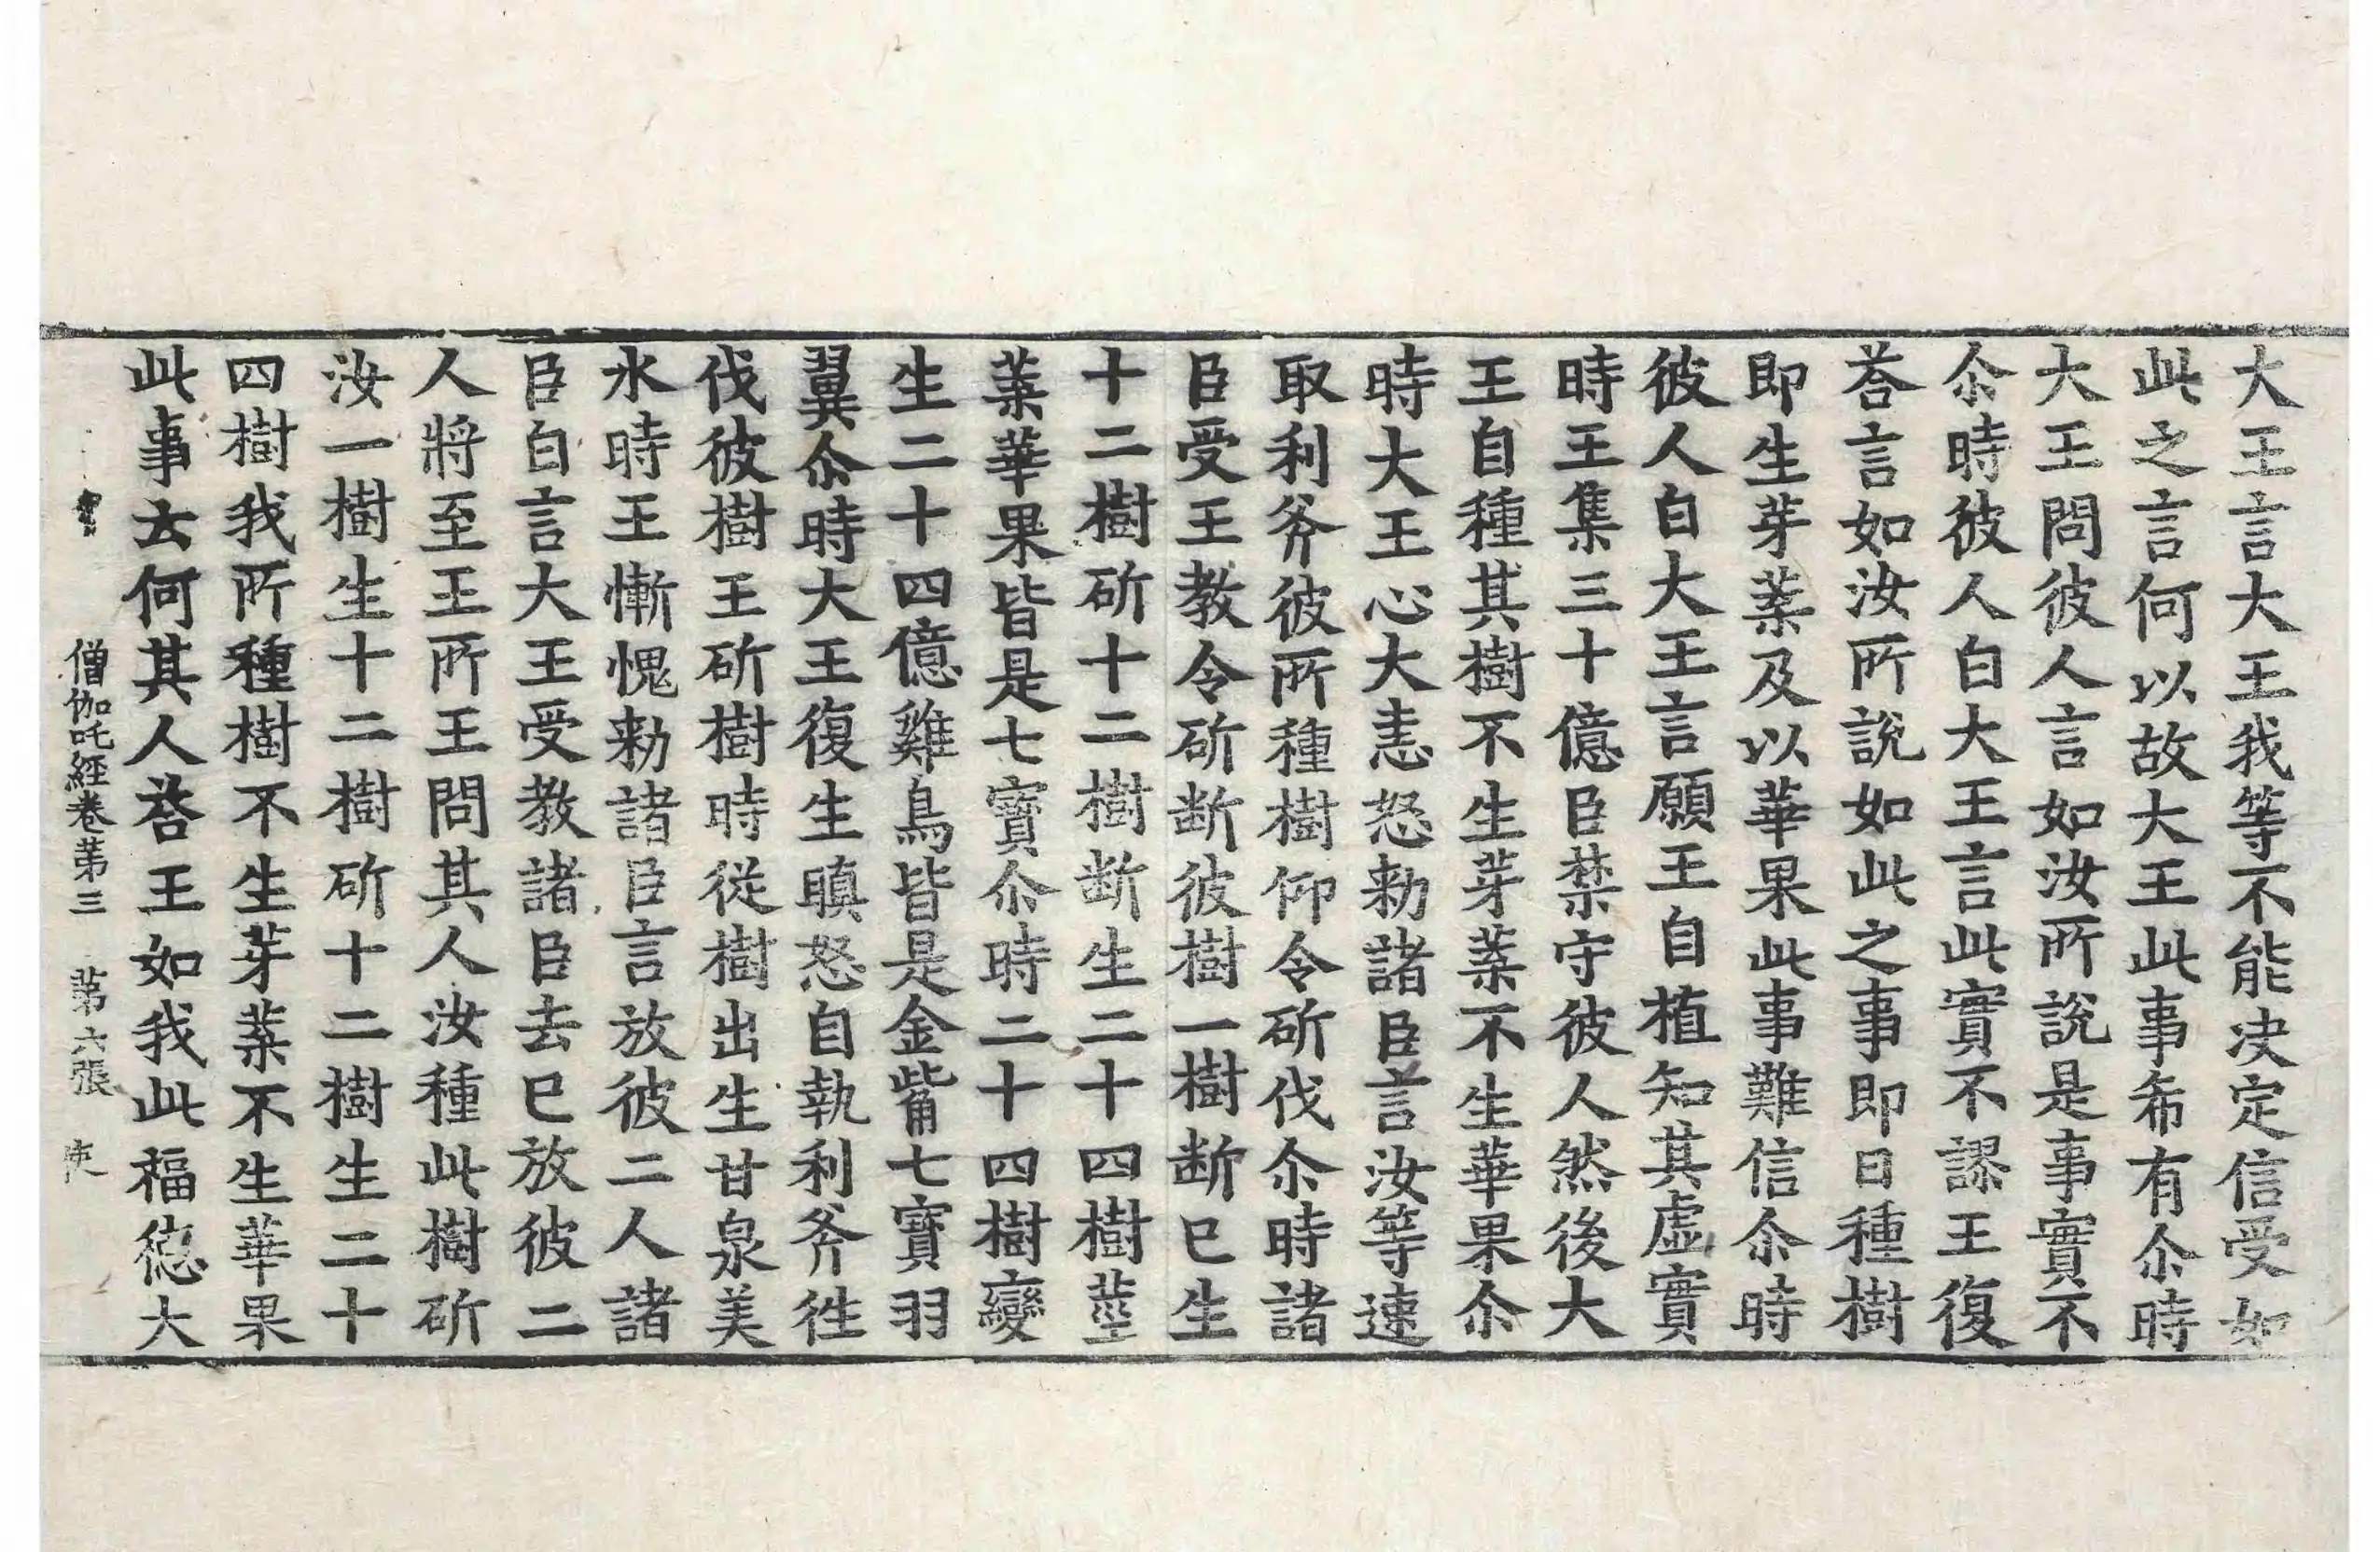 大王言大王我等不能决定信受如
此之言何以故大王此事希有尒時
大王問彼人言如汝所說是事實不
尒時彼人白大王言此實不謬王復
荅言如汝所說如此之事即日種樹
即生芽葉及以華果此事難信尒時
彼人白大王言願王自植知其虛實
時王集三十億臣禁守彼人然後大
王自種其樹不生芽葉不生華果尒
時大王心大恚怒勑諸臣言汝等速
取利斧彼所種樹仰令斫伐尒時諸
臣受王教令斫断彼樹一樹断已生
十二樹斫十二樹断生二十四樹莖
葉華果皆是七寶尒時二十四樹變
生二十四億雞鳥皆是金觜七寶羽
翼尒時大王復生瞋怒自執利斧徃
伐彼樹王斫樹時從樹出生甘泉美
水時王慚愧勑諸臣言放彼二人諸
臣白言大王受教諸臣去已放彼二
人將至王所王問其人汝種此樹斫
汝一樹生十二樹斫十二樹生二十
四樹我所種樹不生芽葉不生華果
此事云何其人荅王如我此福德大
僧伽吒經卷苐三 苐六張 使